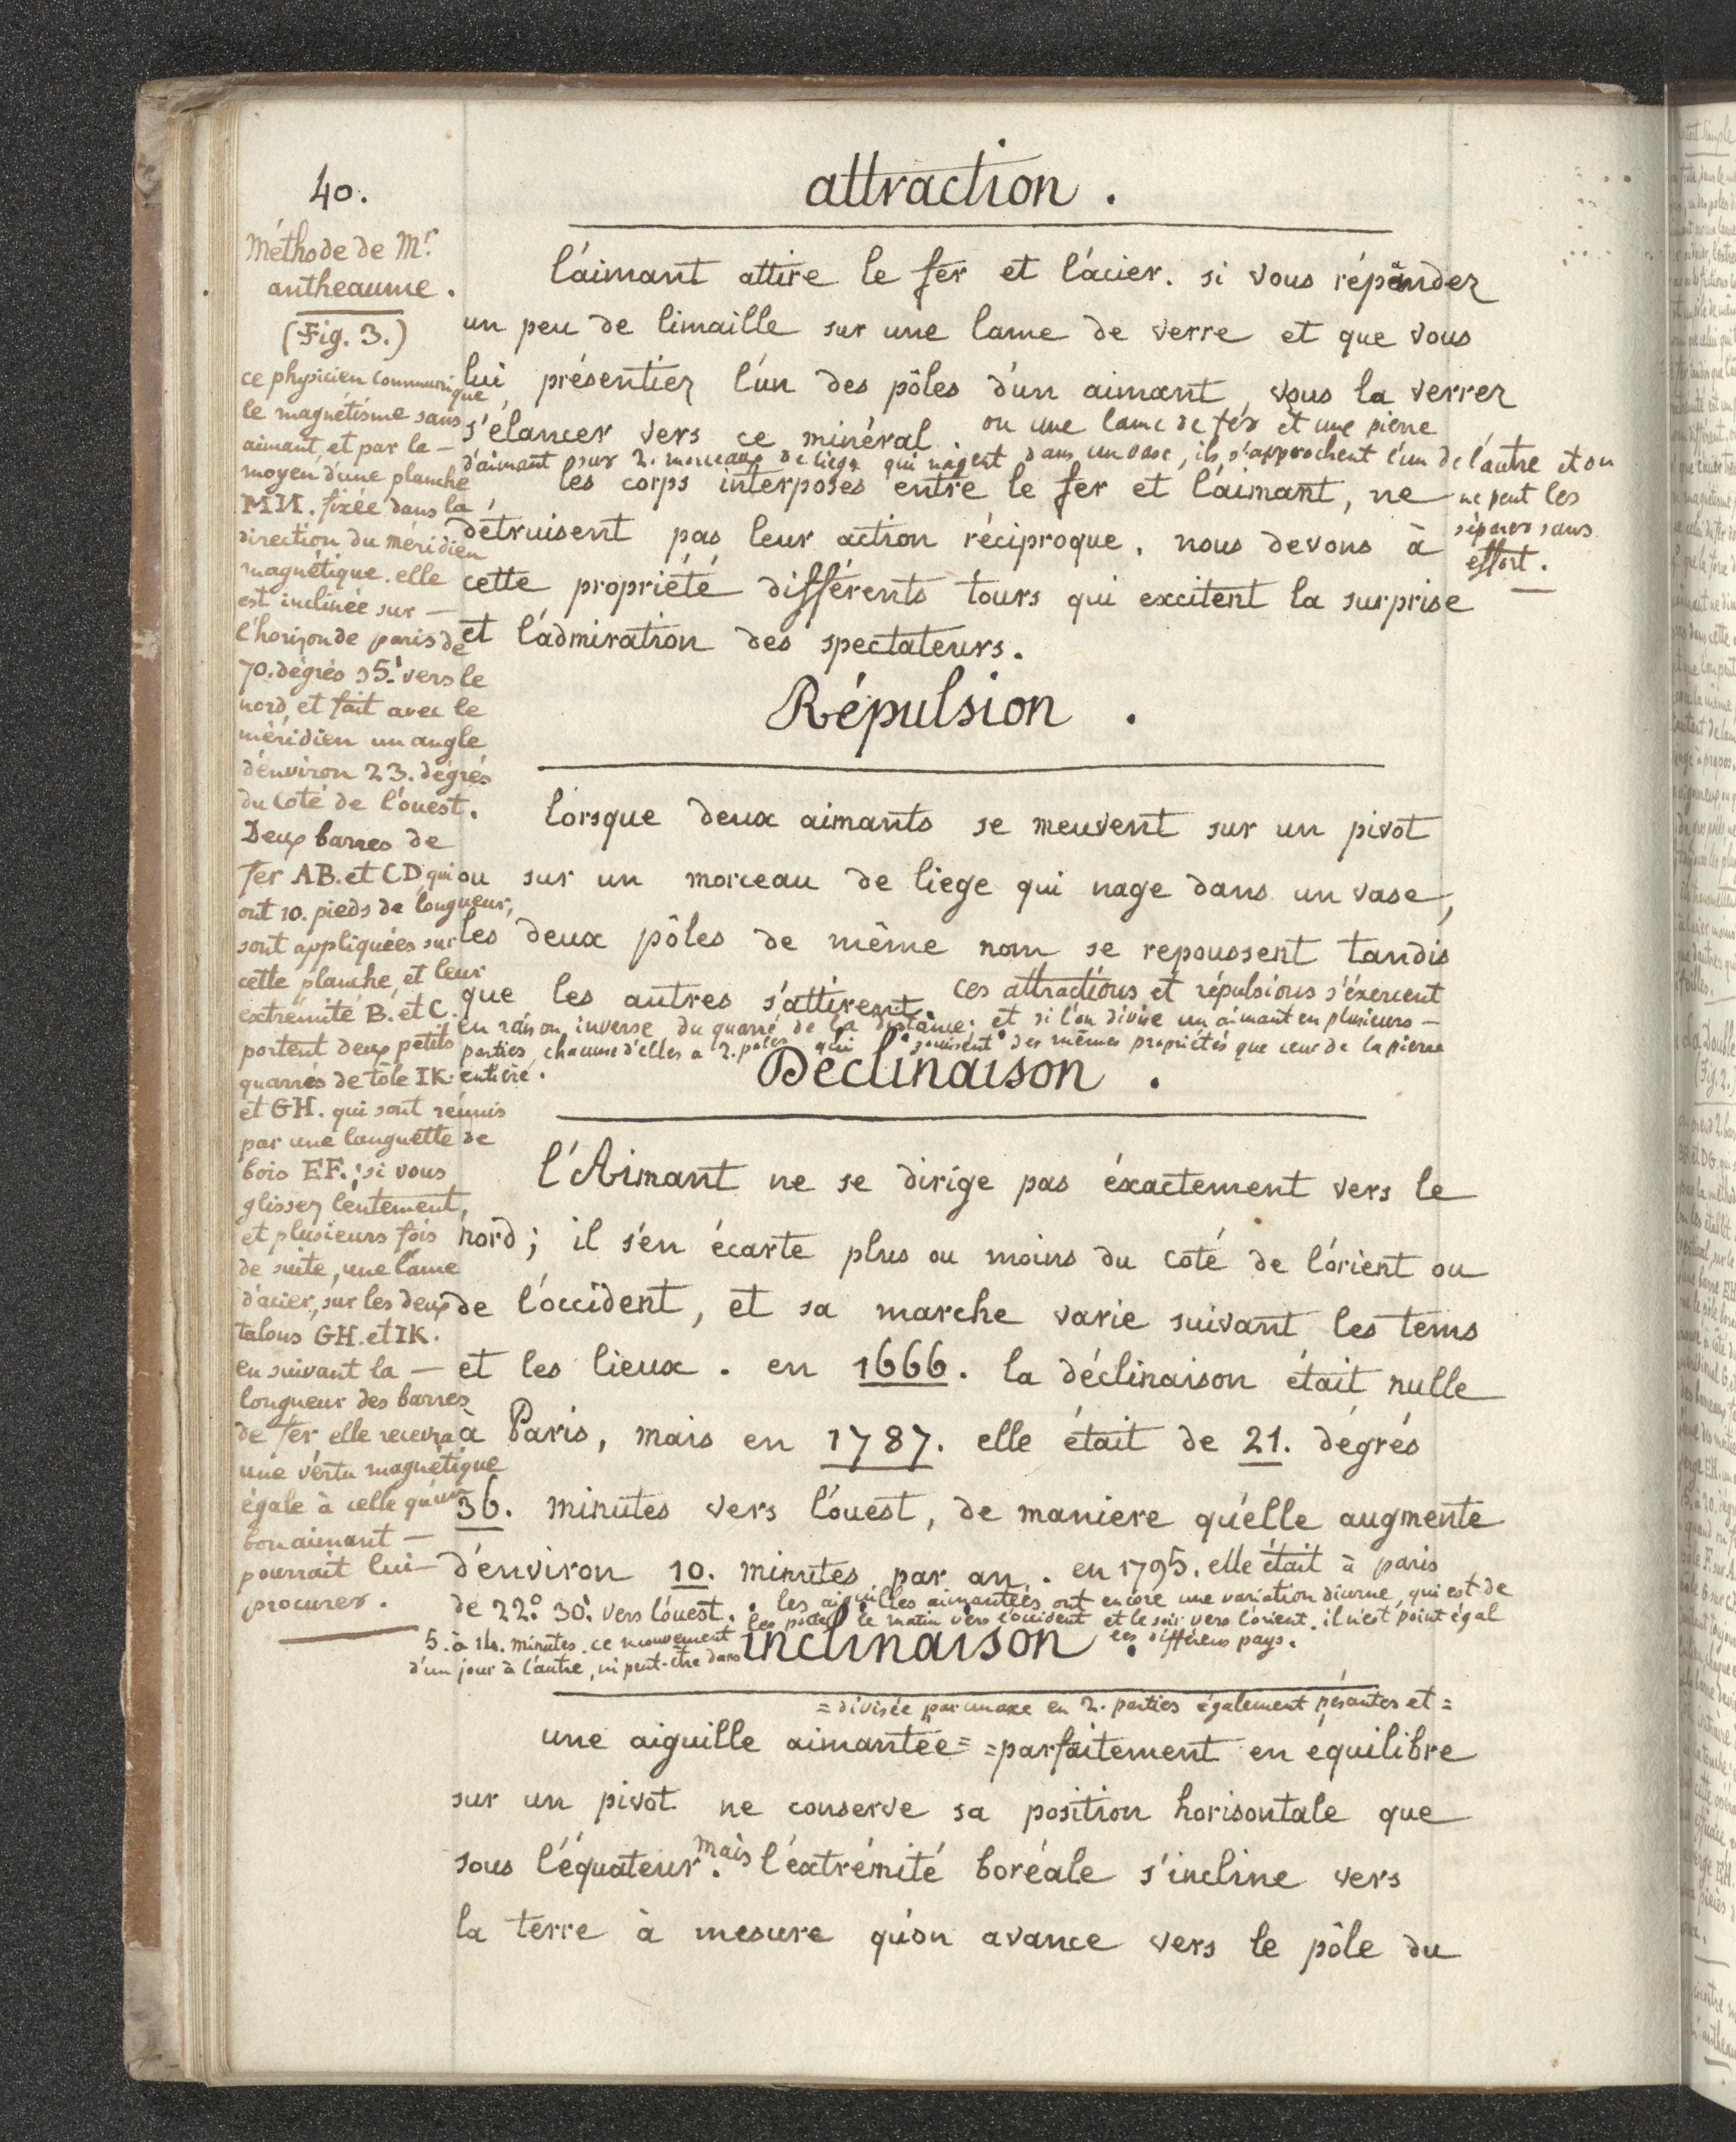 40.
attraction.
l'aimant attire le fer et l'acier. si vous répandez
un peu de limaille sur une lame de verre et que vous
lui présentiez l'un des pôles d'un aimant, vous la verrez
s'élancer vers ce minéral. ou une lame de fer et une pierre
d'aimant pour 2. morceaux de liege qui nagent dans un vase, ils s'approchent l'un de l'autre et on
ne peut les
séparer sans
effort.
les corps interposés entre le fer et l'aimant, ne
détruisent pas leur action réciproque. nous devons à
cette propriété différents tours qui excitent la surprise
et l'admiration des spectateurs.
Répulsion.
lorsque deux aimants se meuvent sur un pivot
ou sur un morceau de liege qui nage dans un vase,
les deux pôles de même nom se repoussent tandis
que les autres s'attirent. ces attractions et répulsions s'éxercent
en raison inverse du quarré de la distance; et si l'on divise un aimant en plusieurs —
parties, chacune d'elles a 2. poles qui jouissent des mêmes propriétés que ceux de la pierre
entiere.
Déclinaison.
l'Aimant ne se dirige pas éxactement vers le
nord; il s'en écarte plus ou moins du coté de l'orient ou
de l'occident, et sa marche varie suivant les tems
et les lieux. en 1666. la déclinaison était nulle
à Paris, mais en 1787. elle était de 21. dégrés
36. minutes vers l'ouest, de maniere qu'elle augmente
d'environ 10. minutes par an. en 1795. elle était à paris
de 22.° 30.' vers l'ouest. les aiguilles aimantées ont encore une variation diurne, qui est de
5. à 14. minutes. ce mouvement les porte le matin vers l'occident et le soir vers l'orient. il n'est point égal
d'un jour à l'autre, ni peut-être dans les différens pays.
inclinaison.
= divisée par un axe en 2. parties également pésantes et =
une aiguille aimantée = = parfaitement en équilibre
sur un pivot ne conserve sa position horisontale que
sous l'équateur. mais l'extrémité boréale s'incline vers
la terre à mesure qu'on avance vers le pôle du
Méthode de Mr.
antheaume.
(Fig. 3.)
ce physicien communique
le magnétisme sans
aimant, et par le —
moyen d'une planche
MN. fixée dans la
direction du méridien
magnétique. elle
est inclinée sur —
l'horizon de paris de
70. dégrés 35.' vers le
nord et fait avec le
méridien un angle
d'environ 23. dégrés
du coté de l'ouest.
Deux barres de
fer AB. et CD qui
ont 10. pieds de longueur,
sont appliquées sur
cette planche, et leur
extrémité B. et C.
portent deux petits
quarrés de tôle IK.
et GH. qui sont réunis
par une languette de
bois EF.; si vous
glissez lentement,
et plusieurs fois
de suite, une lame
d'acier, sur les deux
talons GH. et IK.
en suivant la —
longueur des barres
de fer, elle recevra
une vertu magnétique
égale à celle qu'un
bon aimant —
pourrait lui
procurer.